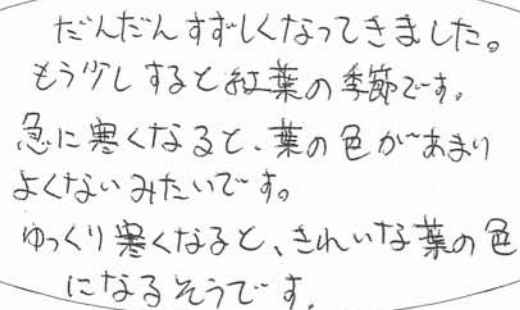 だんだんすずしくなってきました。
もう少しすると紅葉の季節です。
急に寒くなると、葉の色があまり
よくないみたいです。
ゆっくり寒くなると、きれいな葉の色
になるそうです.